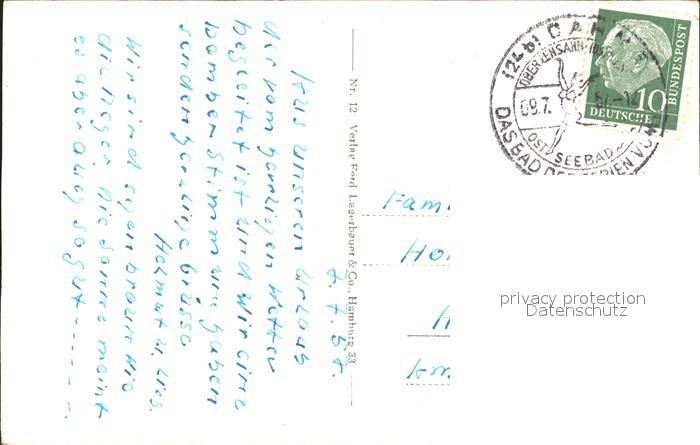 8. 7. 58.
Aus unseren Urlaub
der vom herrlichen Wetter
begleitet ist und wir eine
Bombenstimmung haben
senden herzliche Grüsse
Helmut u.
Wir sind schon braun wie
die Neger. Die Sonne meint
es aber auch so gut -----.
Nr. 12 Verlag Ferd. Lagerbauer & Co., Hamburg 33
(24b) DAH
09.7.
OSTSEEBAD
DAS BAD DER FERIEN
10
DEUTSCHE
BUNDESPOST
Fam
privacy protection
Datenschutz